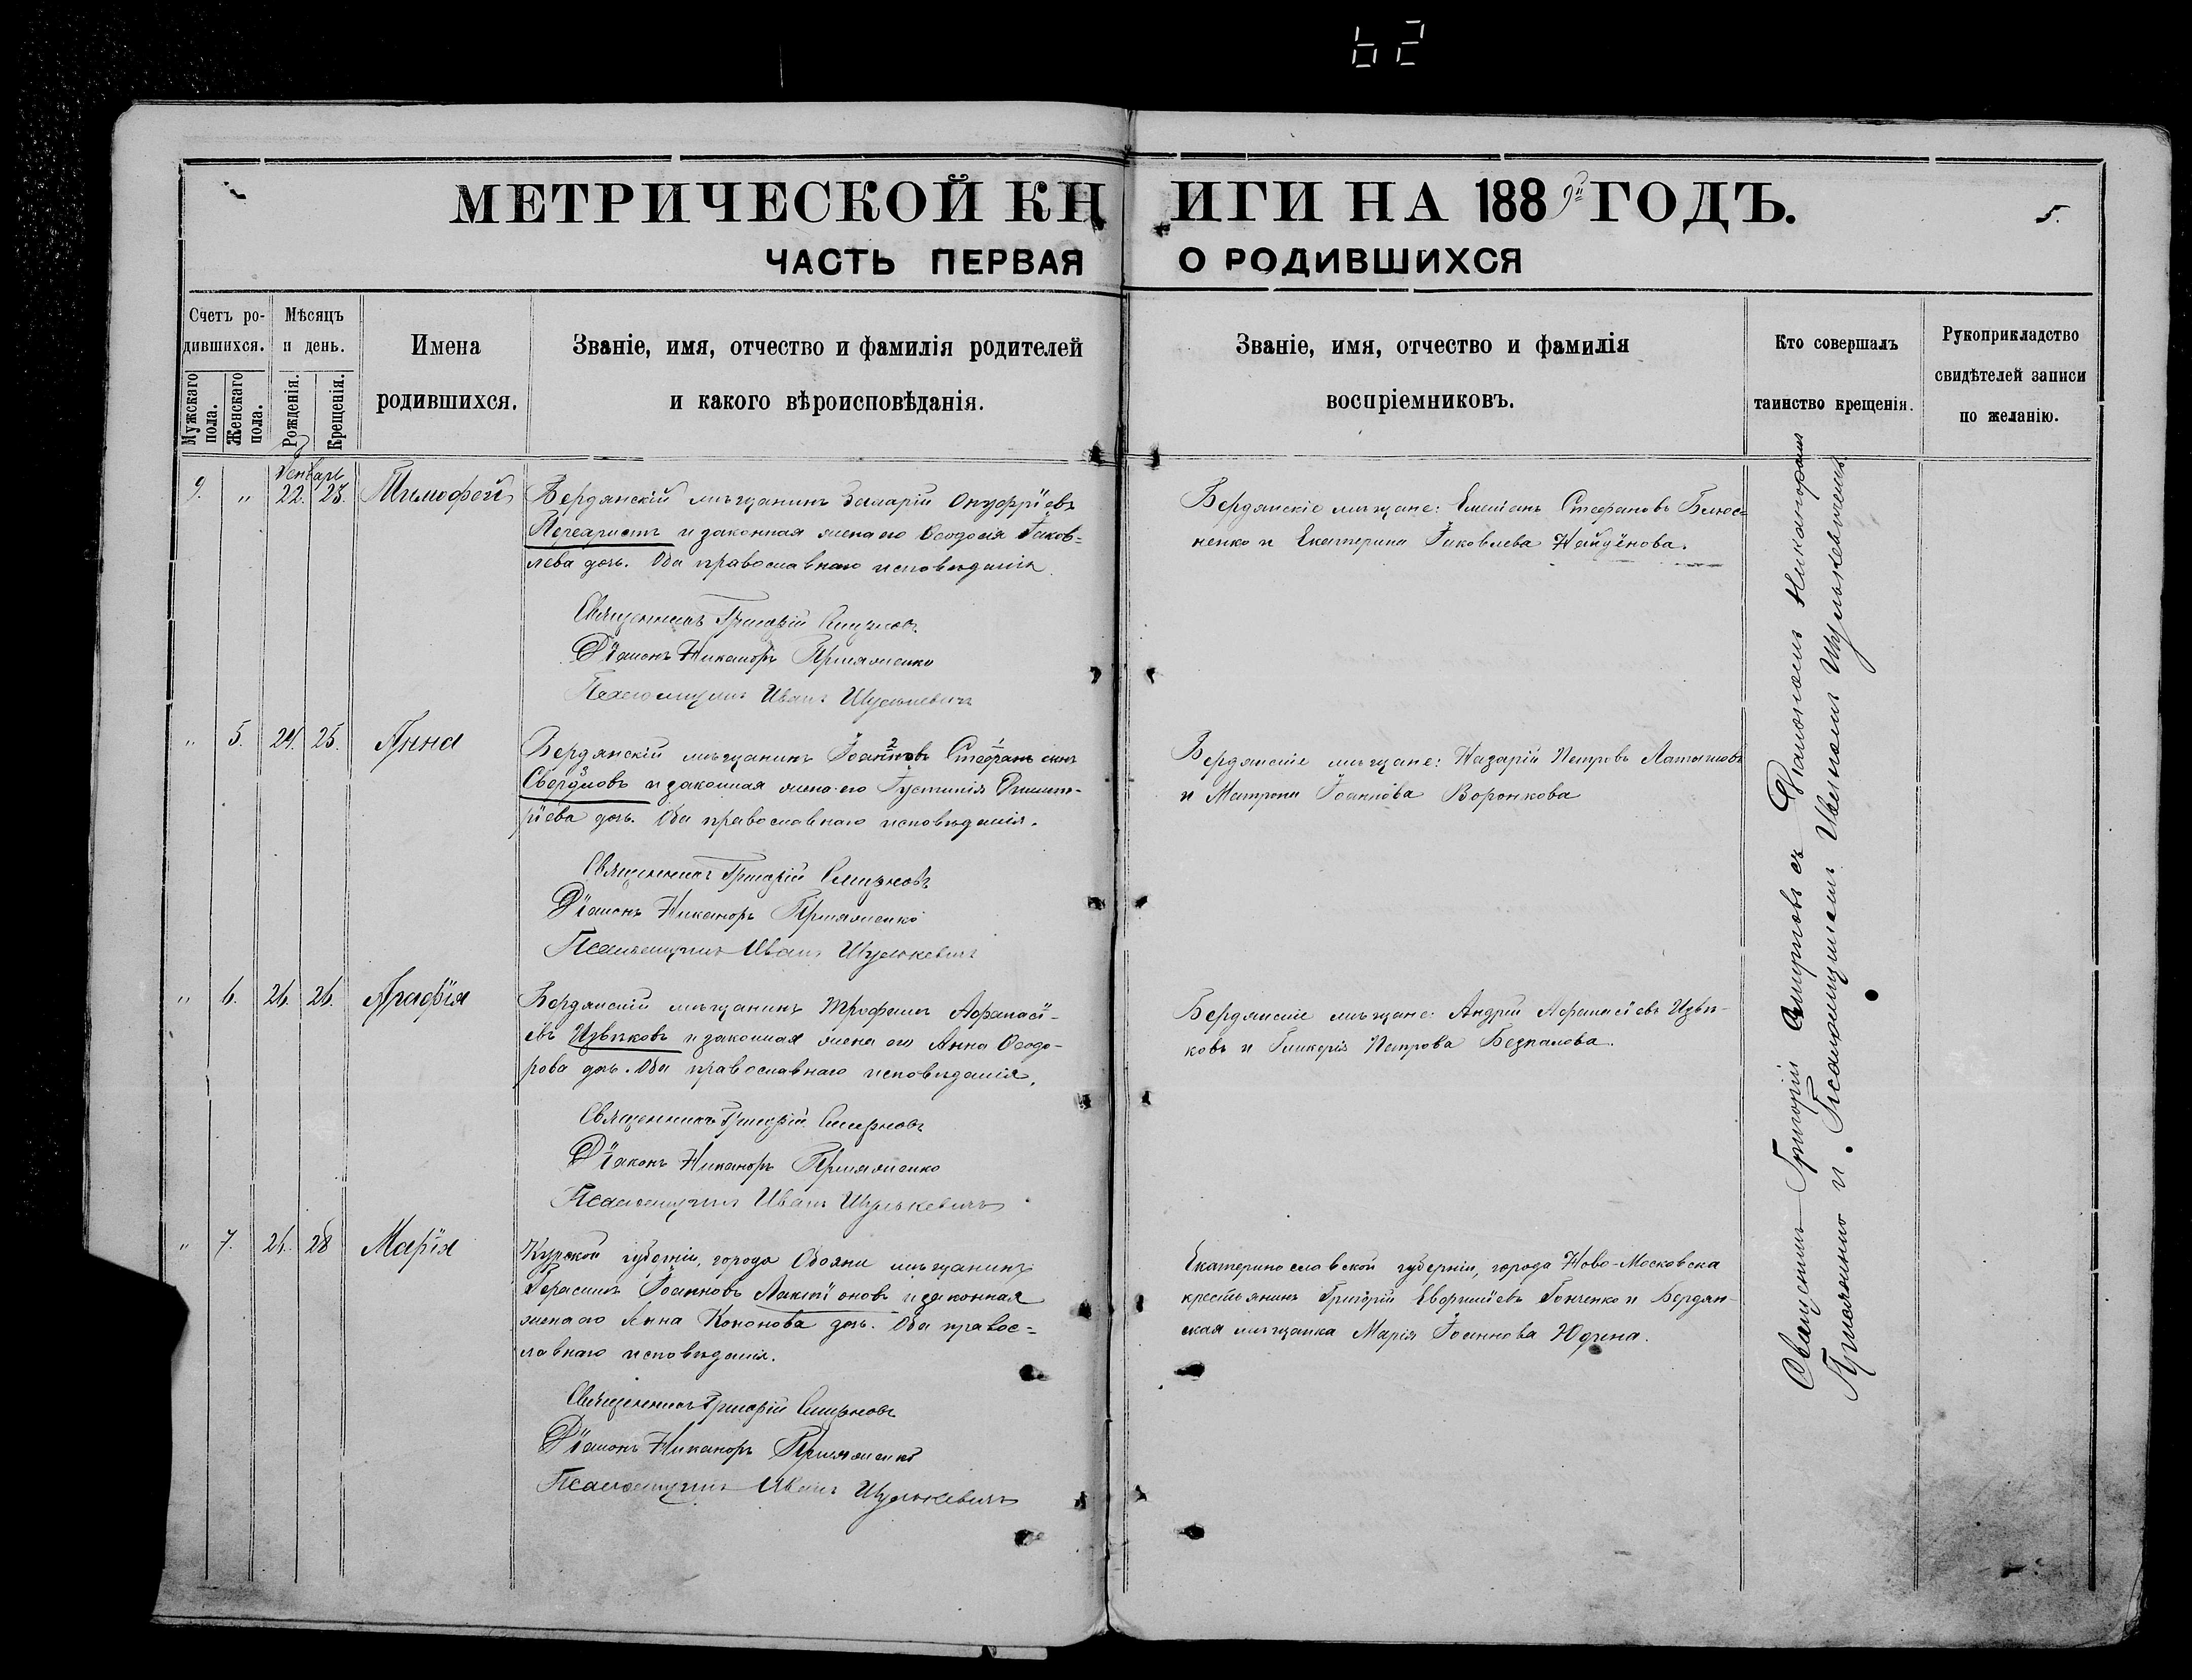 62
МЕТРИЧЕСКОЙ КНИГИ НА 1889й ГОДЪ.
5.
ЧАСТЬ ПЕРВАЯ О РОДИВШИХСЯ
Счетъ ро-
дившихся.
Мужскаго пола.
Женскаго пола.
Мѣсяцъ
и день.
Рожденія.
Крещенія.
Имена
родившихся.
Званіе, имя, отчество и фамилія родителей
и какого вѣроисповѣданія.
Званіе, имя, отчество и фамилія
воспріемниковъ.
Кто совершалъ
таинство крещенія.
Рукоприкладство
свидѣтелей записи
по желанію.
Январь
9. " 22. 23. Тимофей
Бердянскій мѣщанинъ Онуфріевъ
и законная жена его Ѳеодосія Іаков=
лева дочь. Оба православнаго исповѣданія
Священникъ Григорій Смирновъ
Діаконъ Никаноръ Пришаменко
Псаломщикъ Иванъ Шулькевичъ
Бердянскіе мѣщане: Стефановъ
ненко и Екатерина Іаковлева Найдёнова.
" 5. 24. 25. Анна
Бердянскій мѣщанинъ Іоанновъ Стефанъ сынъ
Свердловъ и законная жена его Іустинія Димит-
ріева дочь. Оба православнаго исповѣданія.
Священникъ Григорій Смирновъ
Діаконъ Никаноръ Пришаменко
Псаломщикъ Иванъ Шулькевичъ
Бердянскіе мѣщане: Назарій Петровъ Латышовъ
и Матрона Іоаннова Воронкова
" 6. 26. 26. Агафія
Бердянскій мѣщанинъ Трофимъ Афанасі-
евъ Извѣковъ и законная жена его Анна Ѳеодо-
рова дочь. Оба православнаго исповѣданія.
Священникъ Григорій Смирновъ
Діаконъ Никаноръ Пришаменко
Псаломщикъ Иванъ Шулькевичъ
Бердянскіе мѣщане: Андрей Афанасіевъ Извѣ-
ковъ и Гликерія Петрова Безпалова.
" 7. 26. 28 Марія
Курской губерніи, города Обояни мѣщанинъ
Герасимъ Іоанновъ Лактіоновъ и законная
жена его Анна Кононова дочь. Оба правос=
лавнаго исповѣданія.
Священникъ Григорій Смирновъ
Діаконъ Никаноръ Пришаменко
Псаломщикъ Иванъ Шулькевичъ
Екатеринославской губерніи, города Ново-Московска
крестьянинъ Григорій Гонченко и Бердян-
ская мѣщанка Марія Іоаннова Юдина.
Священникъ Григорій Смирновъ съ Діакономъ Никаноромъ
Пришаменко и Псаломщикомъ Иваномъ Шулькевичемъ.